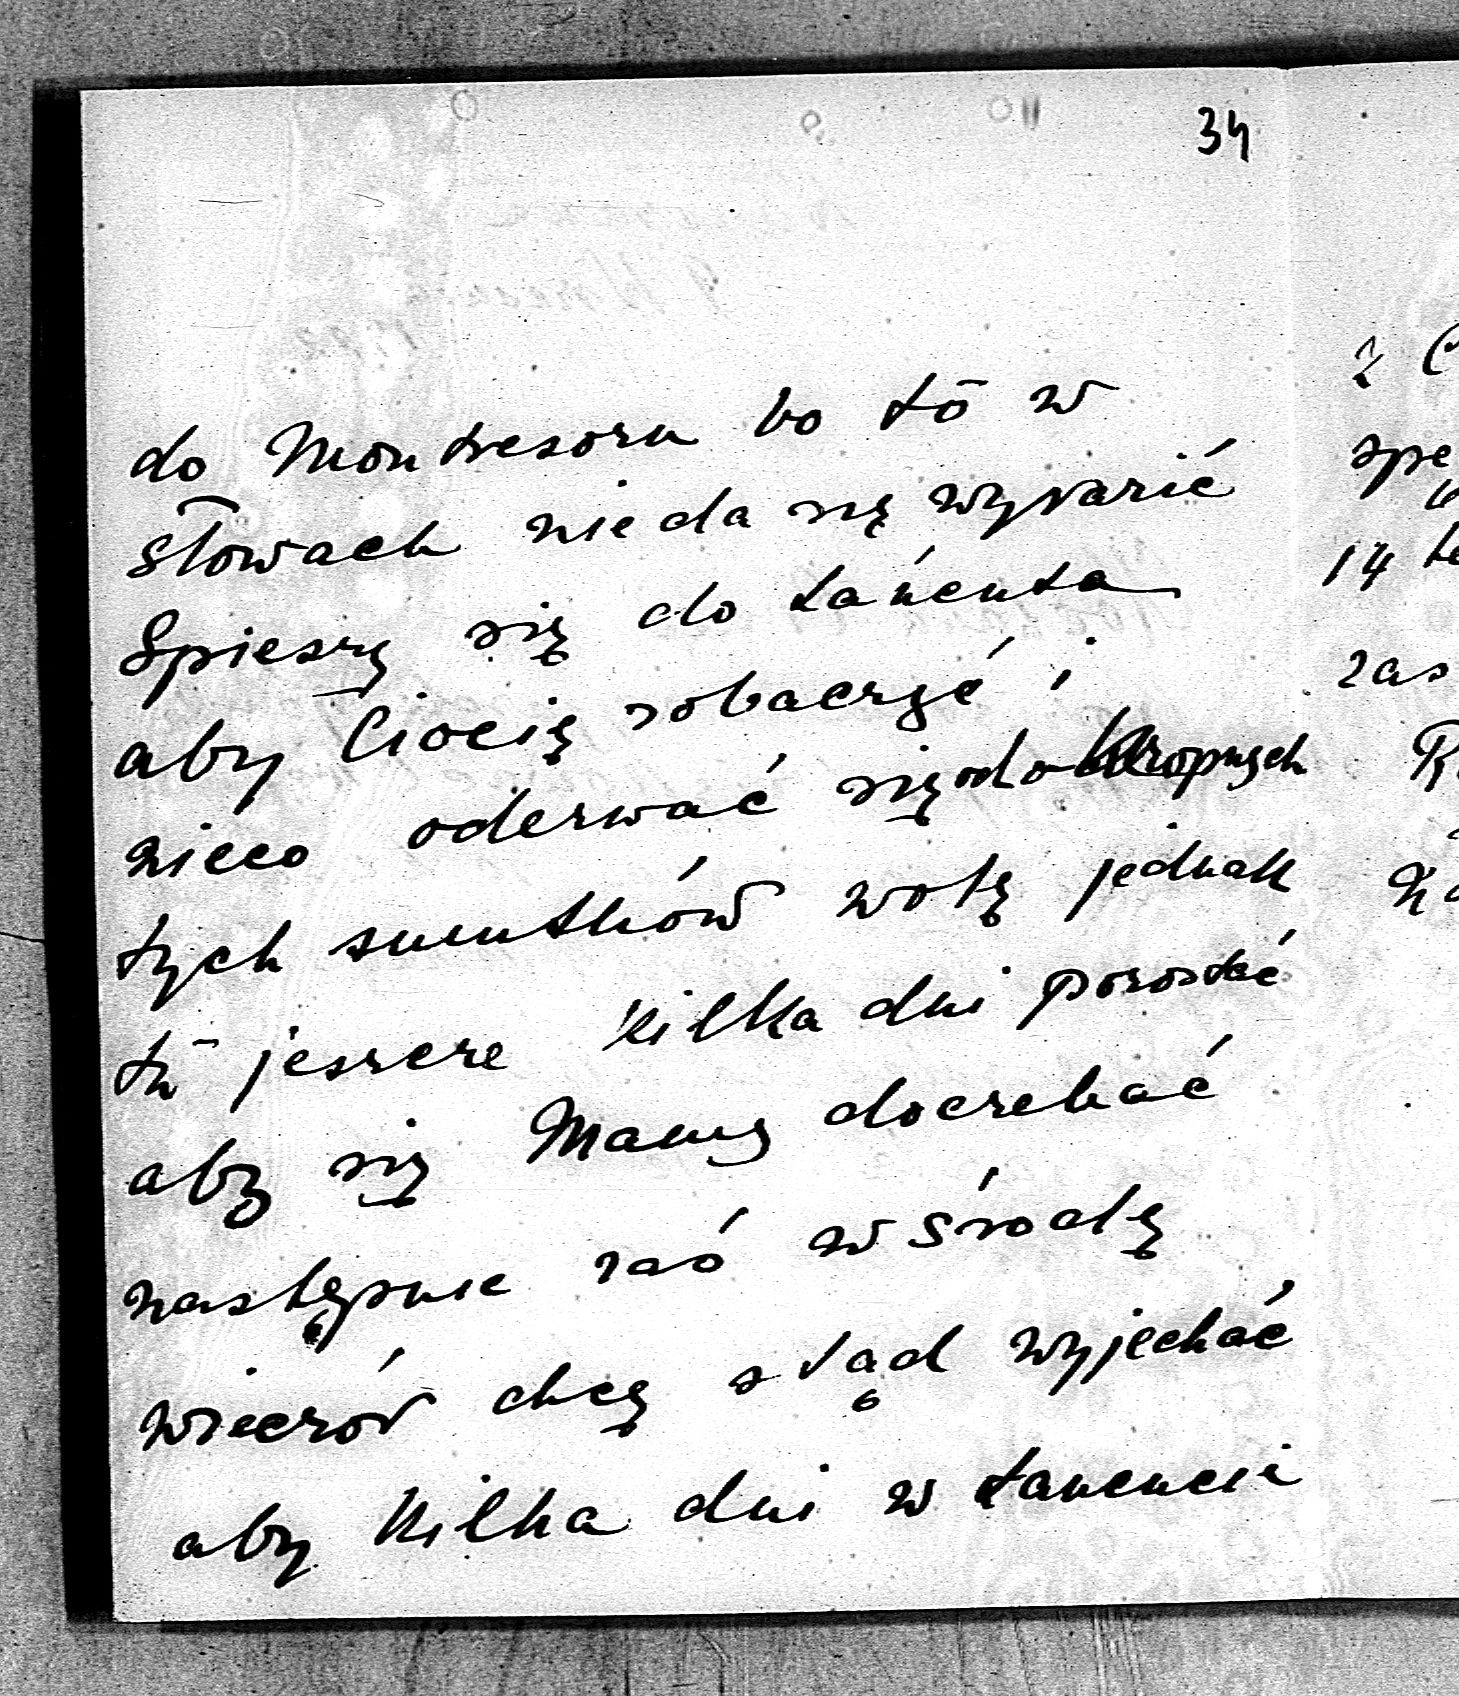 34
do Montresoru bo to w
słowach nieda się wyrazić
Spieszę się do Łańcuta
aby Ciocię zobaczyć i
nieco oderwać się od okropnych
tych smutków wolę jednak
tu jeszcze kilka dni pozostać
aby się Mamy doczekać
następnie zaś w środę
wieczór chcę stąd wyjechać
aby kilka dni w Łancucie
z
spę
14
zas